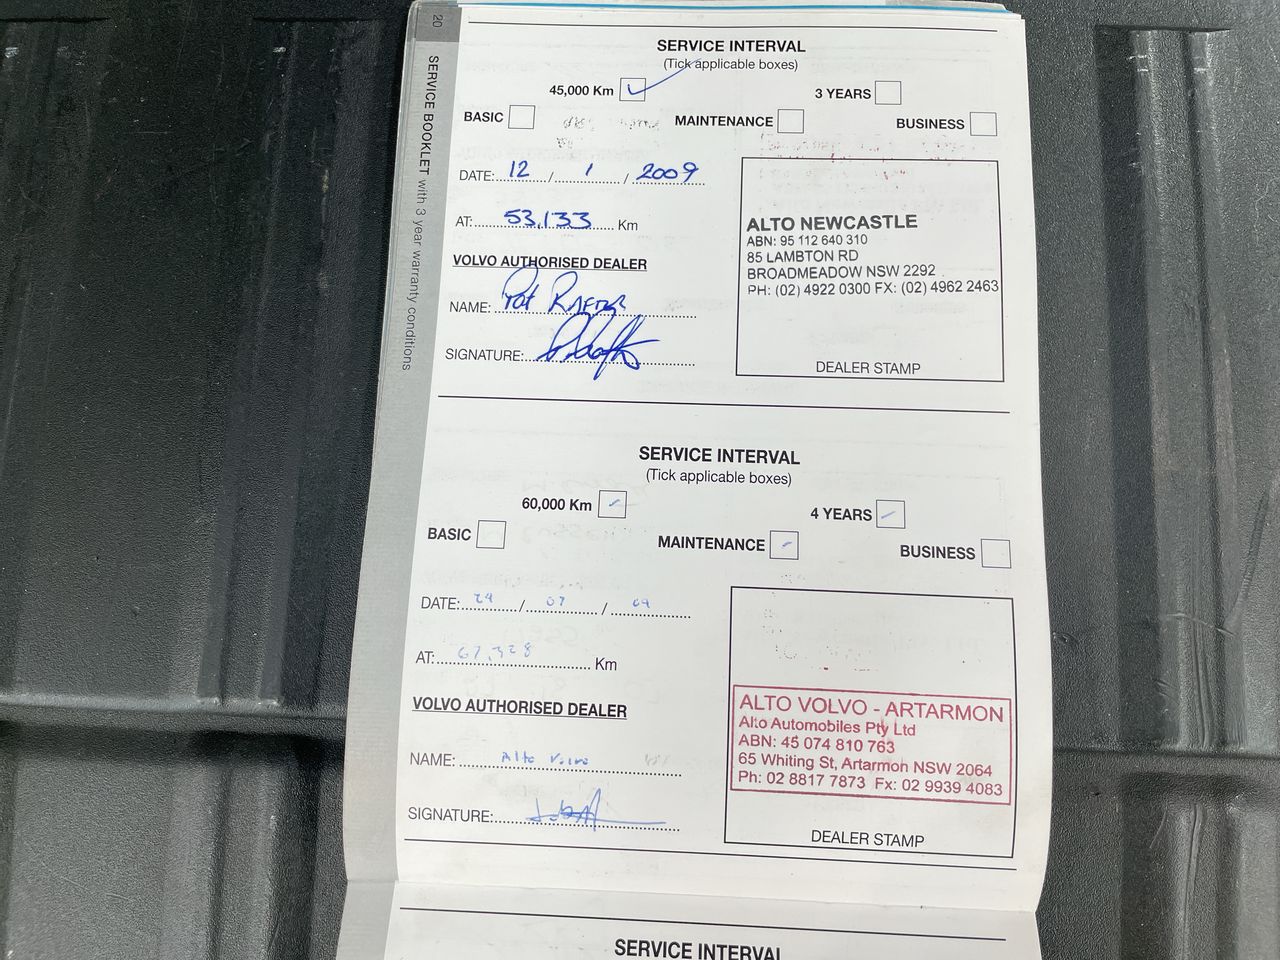 20
SERVICE BOOKLET with 3 year warranty conditions
SERVICE INTERVAL
(Tick applicable boxes)
45,000 Km ✓ 3 YEARS
BASIC MAINTENANCE BUSINESS
DATE: 12 / 1 / 2009
AT: 53,133 Km
VOLVO AUTHORISED DEALER
NAME: Pat Rafter
SIGNATURE:
ALTO NEWCASTLE
ABN: 95 112 640 310
85 LAMBTON RD
BROADMEADOW NSW 2292
PH: (02) 4922 0300 FX: (02) 4962 2463
DEALER STAMP
SERVICE INTERVAL
(Tick applicable boxes)
60,000 Km ✓ 4 YEARS ✓
BASIC MAINTENANCE ✓ BUSINESS
DATE: 29 / 07 / 09
AT: 67,328 Km
VOLVO AUTHORISED DEALER
NAME: Alto Volvo
SIGNATURE:
ALTO VOLVO - ARTARMON
Alto Automobiles Pty Ltd
ABN: 45 074 810 763
65 Whiting St, Artarmon NSW 2064
Ph: 02 8817 7873 Fx: 02 9939 4083
DEALER STAMP
SERVICE INTERVAL